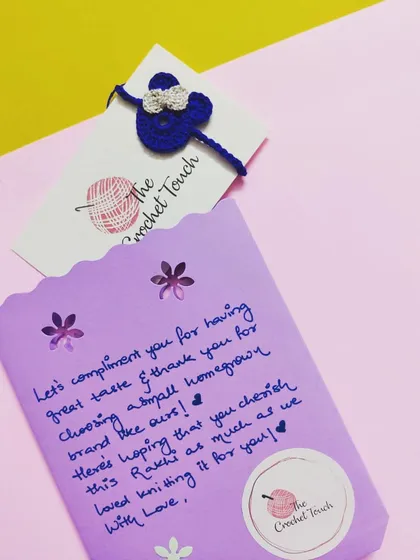 The
Crochet Touch
Let's compliment you for having
great taste & thank you for
choosing a small homegrown
brand like ours! ♥
Here's hoping that you cherish
this Rakhi as much as we
loved knitting it for you! ♥
With Love,
The
Crochet Touch